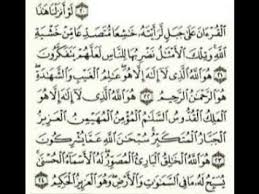 لَوْ أَنزَلْنَا هَٰذَا
الْقُرْءَانَ عَلَىٰ جَبَلٍ لَّرَأَيْتَهُۥ خَٰشِعًا مُّتَصَدِّعًا مِّنْ خَشْيَةِ
اللَّهِ وَتِلْكَ الْأَمْثَٰلُ نَضْرِبُهَا لِلنَّاسِ لَعَلَّهُمْ يَتَفَكَّرُونَ
هُوَ اللَّهُ الَّذِى لَآ إِلَٰهَ إِلَّا هُوَ عَٰلِمُ الْغَيْبِ وَالشَّهَٰدَةِ
هُوَ الرَّحْمَٰنُ الرَّحِيمُ ٢٢ هُوَ اللَّهُ الَّذِى لَآ إِلَٰهَ إِلَّا هُوَ
الْمَلِكُ الْقُدُّوسُ السَّلَٰمُ الْمُؤْمِنُ الْمُهَيْمِنُ الْعَزِيزُ
الْجَبَّارُ الْمُتَكَبِّرُ سُبْحَٰنَ اللَّهِ عَمَّا يُشْرِكُونَ
٢٣ هُوَ اللَّهُ الْخَٰلِقُ الْبَارِئُ الْمُصَوِّرُ لَهُ الْأَسْمَآءُ الْحُسْنَىٰ
يُسَبِّحُ لَهُۥ مَا فِى السَّمَٰوَٰتِ وَالْأَرْضِ وَهُوَ الْعَزِيزُ الْحَكِيمُ ٢٤